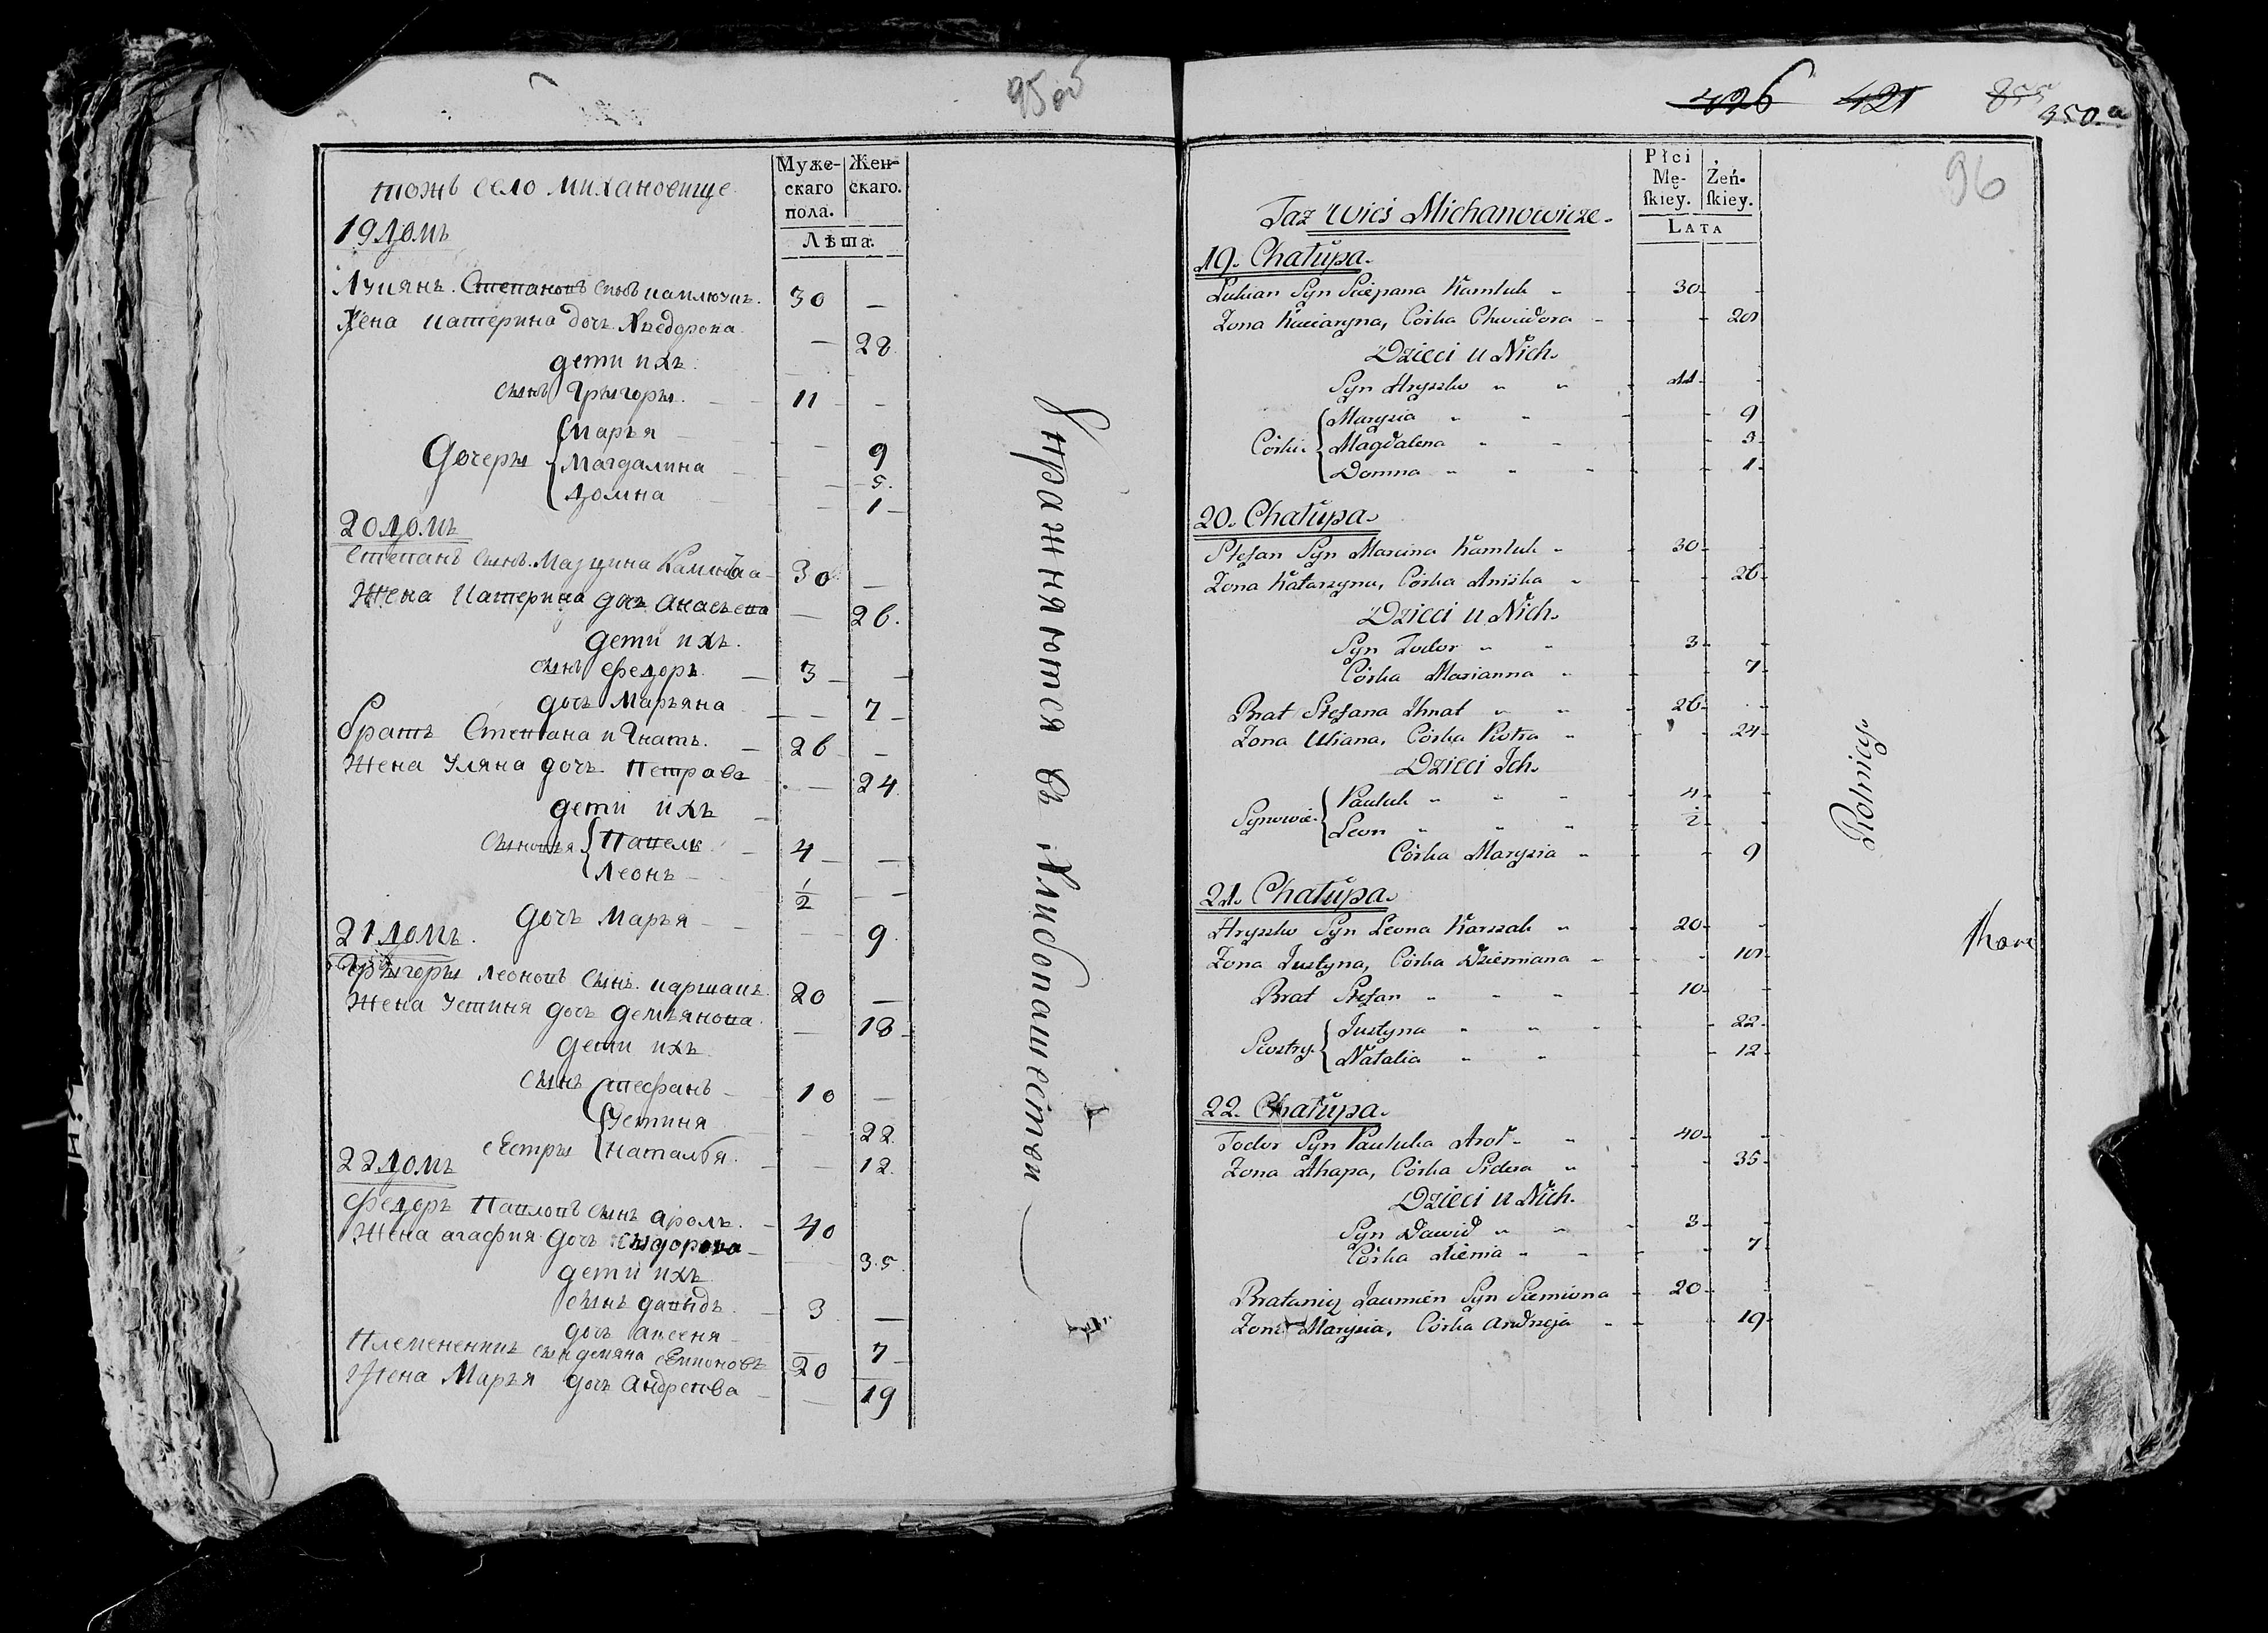 95 об
тожъ село Михановище
Муже-
скаго
пола.
Жен-
скаго.
Лѣта.
19 домъ
Лукянъ Степановъ сынъ Камлюкъ. 30 —
Жена Катерина дочь Хведорова — 28
дети ихъ
сынъ Грыгоры. 11 —
Дочеры
Марья — 9
Магдалина — 5.
Домна — 1
20 домъ
Степанъ сынъ Марцина Камлюка 30 —
Жена Катерина дочъ — 26.
дети ихъ.
сынъ Федоръ 3 —
дочъ Марьяна — 7
братъ Степана Игнатъ. 26 —
Жена Уляна дочъ Петрова — 24
дети ихъ
Сыновья
Павелъ 4 —
Леонъ 1/2 —
дочъ Марья — 9
21 домъ.
Грыгоры Леоновъ сынъ Каршакъ 20 —
Жена Устиня дочъ Демьянова. — 18
дети ихъ
сынъ Стефанъ 10 —
сестры
Устиня 22
Наталья. 12
22 домъ
Федоръ Павловъ сынъ Аролъ. 40
Жена Агафия дочъ Сыдорова 35
дети ихъ
сынъ Давыдъ. 3 —
дочъ Аксеня 7
Племенникъ сын Демяна Семионовъ 20
Жена Марья дочъ Андреева — 19
Упражняются въ Хлибопашестви
426 421 855
350 a
96
Taż Wieś Michanowicze.
Płci
Mę-
ſkiey.
Żeń-
ſkiey.
LATA
19. Chałupa.
Łukian Syn Sciepana Kamluk 30
Zona Kaciaryna, Córka Chwiedora 28
Dzieci u Nich.
Syn Hryszko 11
Córki
Marysia 9
Magdalena 3
Domna 1
20. Chałupa.
Stefan Syn Marcina Kamluk 30
Zona Katarzyna, Córka Aniśka 26
Dzieci u Nich.
Syn Todor 3
Córka Marianna 7
Brat Stefana Ihnat 26
Zona Uliana, Córka Piotra 24
Dzieci Ich.
Synowie
Pauluk 4
Leon 1/2
Córka Marysia 9
21. Chałupa.
Hryszko Syn Leona Karszak 20
Zona Justyna, Córka Dziemiana 18
Brat Stefan 10
Siostry
Justyna 22
Natalia 12
22. Chałupa.
Todor Syn Pauluka Aroł 40
Zona Ahapa, Córka Sidora 35
Dzieci u Nich.
Syn Dawid 3
Córka 7
Bratanicz Syn Siemiona 20
Zona Marysia, Córka Andrzeja 19
Rolnicy